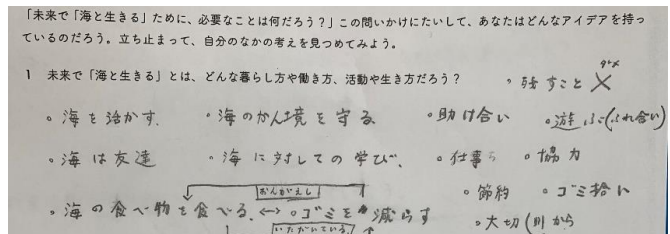 「未来で「海と生きる」ために、必要なことは何だろう？」この問いかけにたいして、あなたはどんなアイデアを持っ
ているのだろう。立ち止まって、自分のなかの考えを見つめてみよう。
1 未来で「海と生きる」とは、どんな暮らし方や働き方、活動や生き方だろう？
。残すこと
。海を活かす.
。海のかん境を守る
。助け合い
。遊ぶ(ふれ合い)
。海は友達
。海に対しての学び、
。仕事
。協力
おんがえし
。節約
。ゴミ拾い
。海の食べ物を食べる。<->。ゴミを減らす
。大切(川から
いただいている